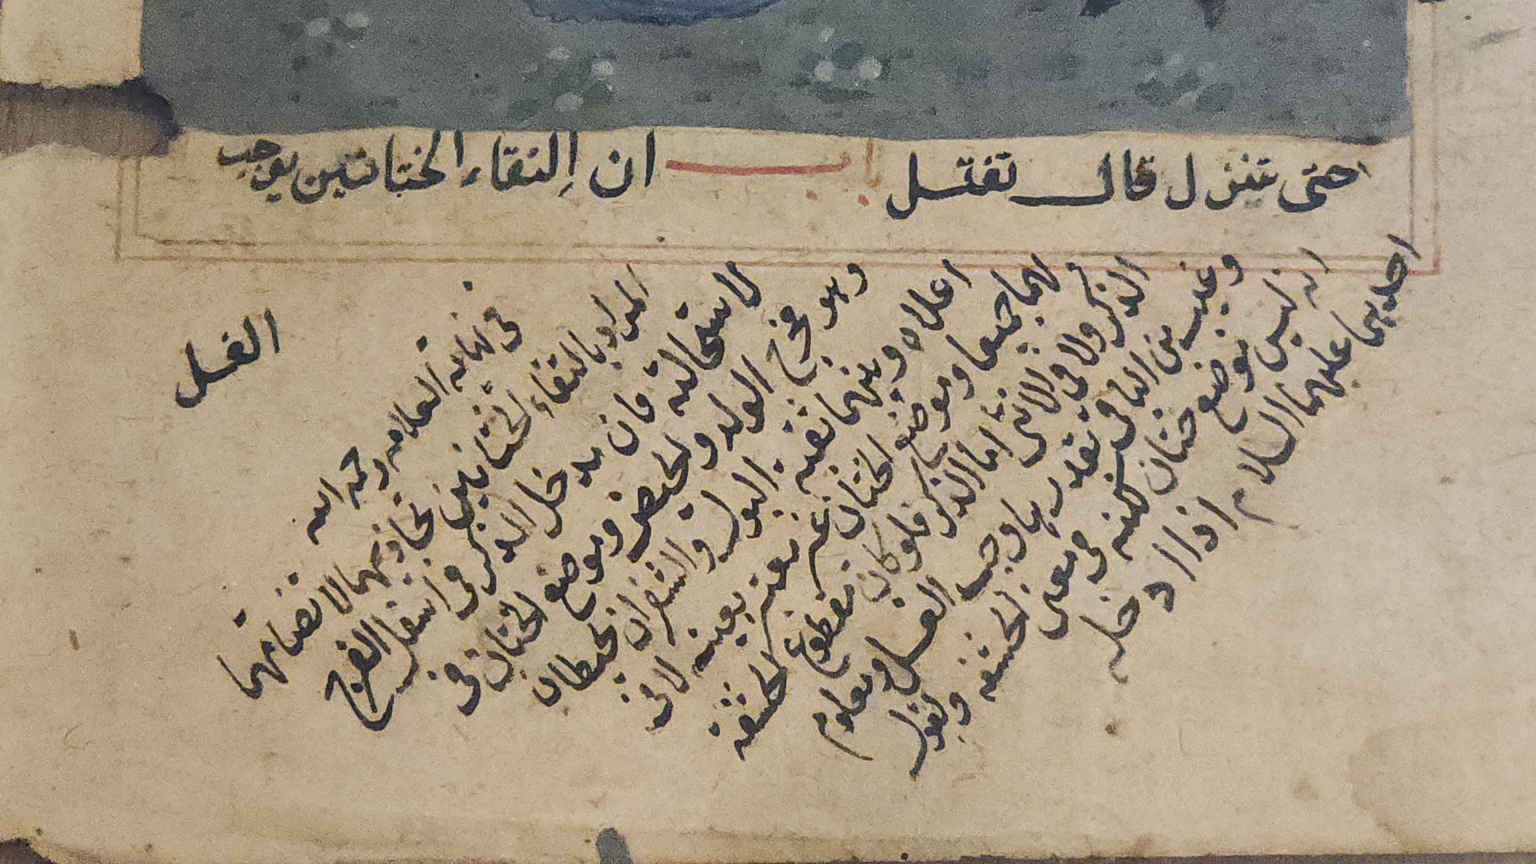 حتى تنزل قال تغتسل ان التقاء الختانين يوجب
الغسل
في نهاية العلامة رحمه الله
المراد بالتقاء الختانين تحاذيهما لا انضمامهما
لاستحالته فان مدخل الذكر في اسفل الفرج
وهو مخرج الولد والحيض وموضع الختان في
اعلاه وبينهما ثقبة البول والشفران
لهما جميعا وموضع الختان غير معتبر بعينه لا في
الذكر ولا في الانثى اما الذكر فلو كان مقطوع الحشفة
وغيب من الباقي بقدرها وجب الغسل ومعلوم
انه ليس موضع ختان لكنه في معنى الحشفة وبقول
احديهما عليهما السلام اذا ادخله